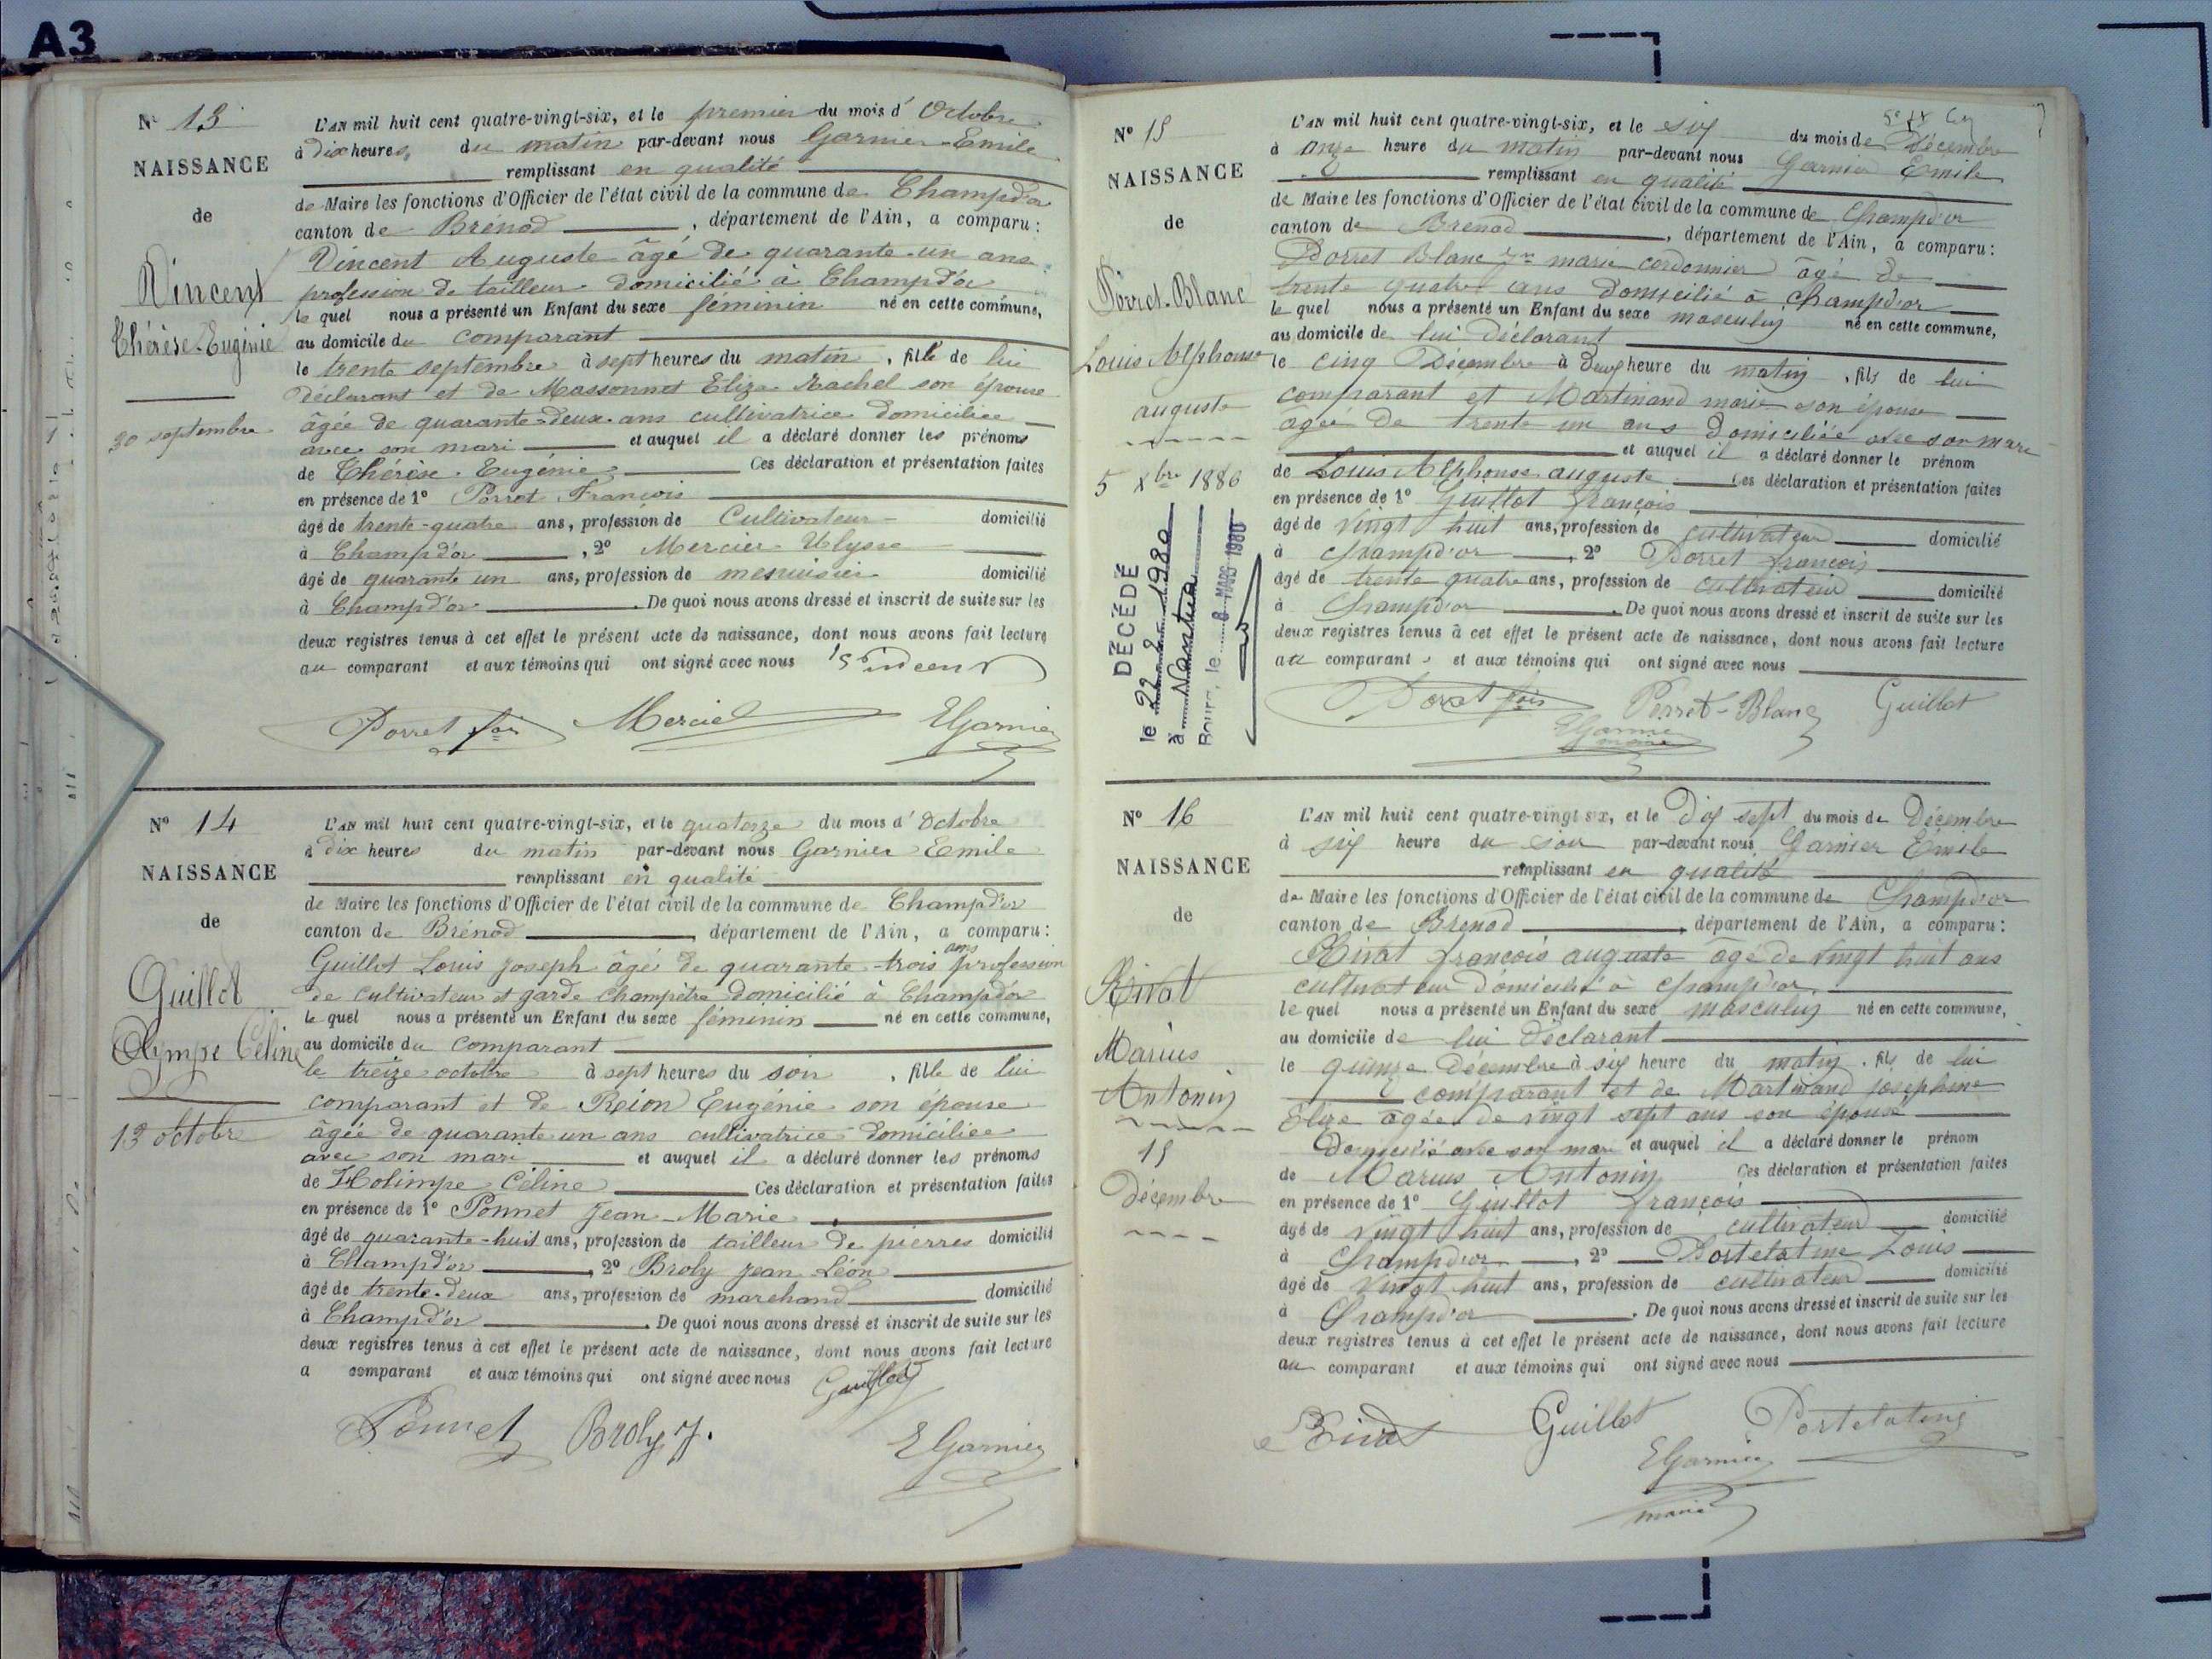 A3
N° 13
NAISSANCE
de
Vincent
Thérèse-Eugénie
30 septembre
L'AN mil huit cent quatre-vingt-six, et le premier du mois d'Octobre
à dix heures, du matin par-devant nous Garnier Emile
remplissant en qualité
de Maire les fonctions d'Officier de l'état civil de la commune de Champd'or
canton de Brénod, département de l'Ain, a comparu:
Vincent Auguste âgé de quarante-un ans
profession de tailleur domicilié à Champd'or
le quel nous a présenté un Enfant du sexe féminin né en cette commune,
au domicile du comparant
le trente septembre à sept heures du matin, fille de lui
déclarant et de Massonnet Eliza Rachel son épouse
âgée de quarante-deux ans cultivatrice domiciliée
avec son mari et auquel il a déclaré donner les prénoms
de Thérèse-Eugénie Ces déclaration et présentation faites
en présence de 1° Porret François
âgé de trente-quatre ans, profession de Cultivateur domicilié
à Champd'or, 2° Mercier Ulysse
âgé de quarante un ans, profession de menuisier domicilié
à Champd'or. De quoi nous avons dressé et inscrit de suite sur les
deux registres tenus à cet effet le présent acte de naissance, dont nous avons fait lecture
au comparant et aux témoins qui ont signé avec nous Vincent
Porret fois Mercier EGarnier
N° 14
NAISSANCE
de
Guillot
Olympe Céline
13 octobre
L'AN mil huit cent quatre-vingt-six, et le quatorze du mois d'Octobre
à dix heures du matin par-devant nous Garnier Emile
remplissant en qualité
de Maire les fonctions d'Officier de l'état civil de la commune de Champd'or
canton de Brénod, département de l'Ain, a comparu:
Guillot Louis Joseph âgé de quarante-trois ans profession
de cultivateur et garde champêtre domicilié à Champd'or
le quel nous a présenté un Enfant du sexe féminin né en cette commune,
au domicile du comparant
le treize octobre à sept heures du soir, fille de lui
comparant et de Reion Eugénie son épouse
âgée de quarante un ans cultivatrice domiciliée
avec son mari et auquel il a déclaré donner les prénoms
de Holimpe Céline Ces déclaration et présentation faites
en présence de 1° Ponnet Jean-Marie
âgé de quarante-huit ans, profession de tailleur de pierres domicilié
à Champd'or, 2° Broly Jean Léon
âgé de trente-deux ans, profession de marchand domicilié
à Champd'or. De quoi nous avons dressé et inscrit de suite sur les
deux registres tenus à cet effet le présent acte de naissance, dont nous avons fait lecture
a comparant et aux témoins qui ont signé avec nous Guillot
Ponnet Broly J. EGarnier
N° 15
NAISSANCE
de
Porret-Blanc
Louis Alphonse
auguste
5 Xbre 1886
DÉCÉDÉ
le 22-2-1980
à Nantua
Bourg, le 8 MARS 1980
L'AN mil huit cent quatre-vingt-six, et le six du mois de Décembre
à onze heure du matin par-devant nous Garnier Emile
remplissant en qualité
de Maire les fonctions d'Officier de l'état civil de la commune de Champd'or
canton de Brenod, département de l'Ain, a comparu:
Porret Blanc Jn marie cordonnier âgé de
trente quatre ans domicilié à Champd'or
le quel nous a présenté un Enfant du sexe masculin né en cette commune,
au domicile de lui déclarant
le cinq Décembre à deux heure du matin, fils de lui
comparant et Martinand marie son épouse
agée de trente un ans domiciliée avec son mari
et auquel il a déclaré donner le prénom
de Louis Alphonse auguste Ces déclaration et présentation faites
en présence de 1° Guillot françois
âgé de vingt huit ans, profession de cultivateur domicilié
à Champd'or, 2° Porret françois
âgé de trente quatre ans, profession de cultivateur domicilié
à Champd'or. De quoi nous avons dressé et inscrit de suite sur les
deux registres tenus à cet effet le présent acte de naissance, dont nous avons fait lecture
au comparant et aux témoins qui ont signé avec nous
Porret fois Perret-Blanc Guillot
EGarnier
maire
N° 16
NAISSANCE
de
Rivat
Marius
Antonin
15
Décembre
L'AN mil huit cent quatre-vingt six, et le Dix sept du mois de Décembre
à six heure du soir par-devant nous Garnier Émile
remplissant en qualité
de Maire les fonctions d'Officier de l'état civil de la commune de Champd'or
canton de Brenod, département de l'Ain, a comparu:
Rivat françois auguste âgé de vingt huit ans
cultivateur domicilié à Champd'or.
le quel nous a présenté un Enfant du sexe masculin né en cette commune,
au domicile de lui déclarant
le quinze Décembre à six heure du matin. fils de lui
comparant et de Martinand josephine
Elize âgée de vingt sept ans son épouse
Domicilié avec son mari et auquel il a déclaré donner le prénom
de Marius Antonin Ces déclaration et présentation faites
en présence de 1° Guillot françois
âgé de vingt huit ans, profession de cultivateur domicilié
à Champd'or, 2° Portelatine Louis
âgé de vingt huit ans, profession de cultivateur domicilié
à Champd'or. De quoi nous avons dressé et inscrit de suite sur les
deux registres tenus à cet effet le présent acte de naissance, dont nous avons fait lecture
au comparant et aux témoins qui ont signé avec nous
Rivat Guillot Portelatine
EGarnier
maire